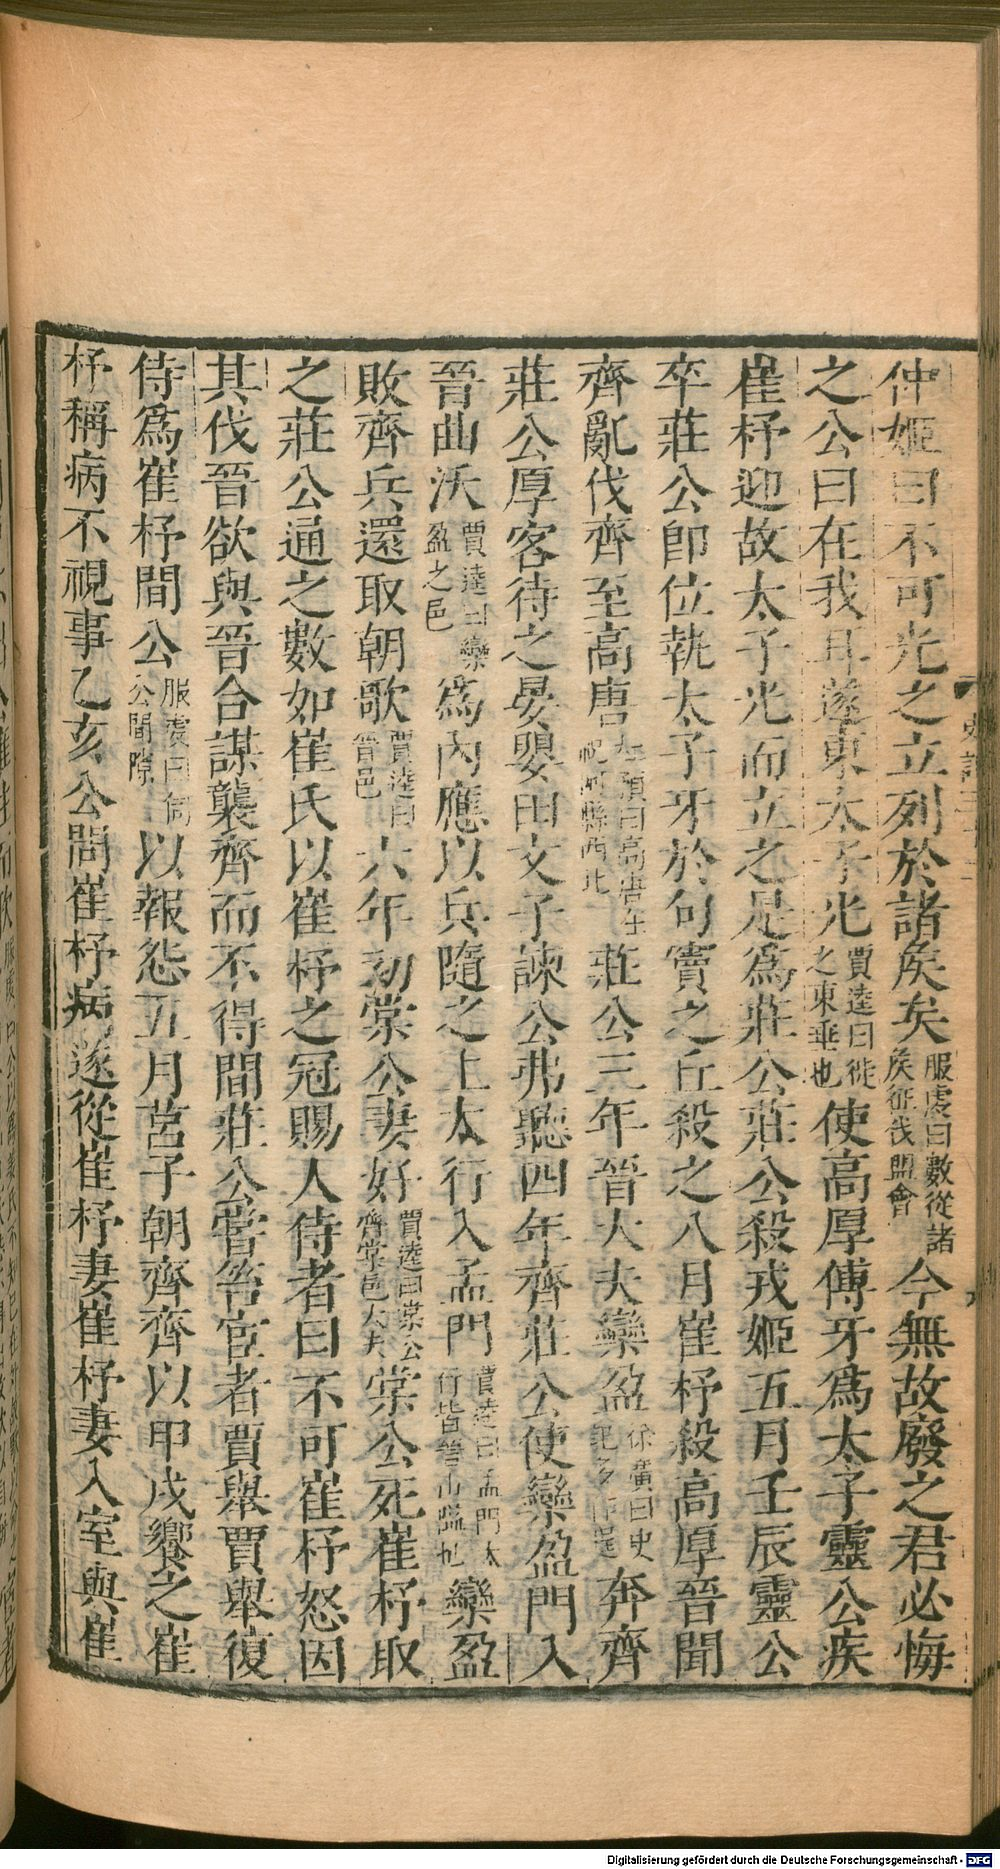 仲姬曰不可光之立列於諸矦矣服虔曰數從諸矦征伐盟會今無故廢之君必悔
之公曰在我耳遂東太子光賈逵曰徙之東垂也使高厚傅牙爲太子靈公疾
崔杼迎故太子光而立之是爲莊公莊公殺戎姬五月壬辰靈公
卒莊公卽位執太子牙於句竇之丘殺之八月崔杼殺高厚晉聞
齊亂伐齊至高唐杜預曰高唐在祝阿縣西北莊公三年晉大夫欒盈徐廣曰史記多作逞奔齊
莊公厚客待之晏嬰田文子諫公弗聽四年齊莊公使欒盈閒入
晉曲沃賈逵曰欒盈之邑爲內應以兵隨之上太行入孟門賈逵曰孟門太行皆晉山隘也欒盈
敗齊兵還取朝歌賈逵曰晉邑六年初棠公妻好賈逵曰棠公齊棠邑大夫棠公死崔杼取
之莊公通之數如崔氏以崔杼之冠賜人侍者曰不可崔杼怒因
其伐晉欲與晉合謀襲齊而不得間莊公嘗笞宦者賈舉賈舉復
侍爲崔杼間公服虔曰伺公間隙以報怨五月莒子朝齊齊以甲戌饗之崔
杼稱病不視事乙亥公問崔杼病遂從崔杼妻崔杼妻入室與崔
Digitalisierung gefördert durch die Deutsche Forschungsgemeinschaft - DFG